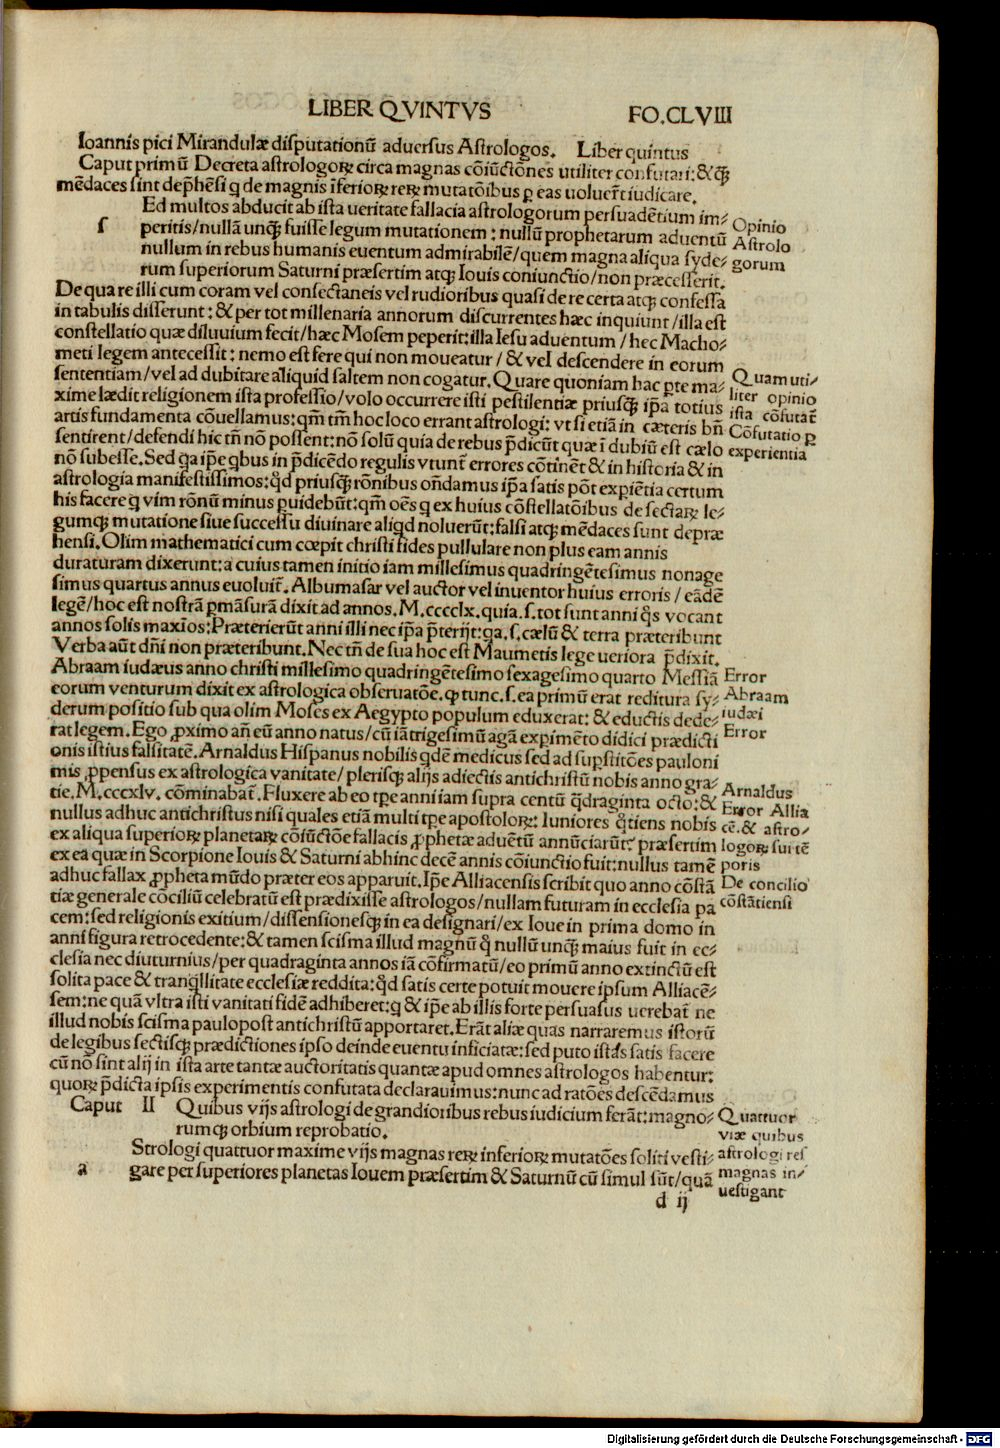 LIBER QVINTVS FO.CLVIII
Ioannis pici Mirandulæ disputationū aduersus Astrologos. Liber quintus
Caput primū Decreta astrologoꝝ circa magnas cōiūctōnes utiliter confutari: & ꝙ
mēdaces sint dep̄hēsi q de magnis īferioꝝ reꝝ mutatōibus ꝑ eas uoluer̄t iudicare.
Ed multos abducit ab ista ueritate fallacia astrologorum persuadētium im⸗
s peritis/nullā unq̄ꝫ fuisse legum mutationem: nullū prophetarum aduentū
nullum in rebus humanis euentum admirabilē/quem magna aliqua syde⸗
rum superiorum Saturni præsertim atqꝫ Iouis coniunctio/non præcesserit.
De qua re illi cum coram vel consectaneis vel rudioribus quasi de re certa atqꝫ confessa
in tabulis disserunt: & per tot millenaria annorum discurrentes hæc inquiunt/illa est
constellatio quæ diluuium fecit/hæc Mosem peperit: illa Iesu aduentum/hec Macho⸗
meti legem antecessit: nemo est fere qui non moueatur/& vel descendere in eorum
sententiam/vel ad dubitare aliquid saltem non cogatur. Quare quoniam hac ꝑte ma⸗
xime lædit religionem ista professio/volo occurrere isti pestilentiæ priusq̄ꝫ ip̄a totius
artis fundamenta cōuellamus: qm̄ tm̄ hoc loco errant astrologi: vt si etiā in cæteris bn̄
sentirent/defendi hic tn̄ nō possent: nō solū quia de rebus p̄dicūt quæ ī dubiū est cælo
nō subesse. Sed qa ip̄e qbus in p̄dicēdo regulis vtunt̄ errores cōtinēt & in historia & in
astrologia manifestissimos: qd̄ priusq̄ꝫ rōnibus on̄damus ip̄a satis pōt exp̄iētia certum
his facere q vim rōnū minus ꝑuidebūt: qm̄ oēs q ex huius cōstellatōibus de sectaꝝ le⸗
gumqꝫ mutatione siue successu diuinare aliqd noluerūt: falsi atqꝫ mēdaces sunt depræ
hensi. Olim mathematici cum cœpit christi fides pullulare non plus eam annis
duraturam dixerunt: a cuius tamen initio iam millesimus quadringētesimus nonage
simus quartus annus euoluit̄. Albumasar vel auctor vel inuentor huius erroris/eādē
legē/hoc est nostrā ꝑmāsurā dixit ad annos. M.ccccLx. quia .s. tot sunt anni q̄s vocant
annos solis maxīos: Præterierūt anni illi nec ip̄a p̄terijt: qa .s. cælū & terra præteribunt
Verba aūt dn̄i non præteribunt. Nec tn̄ de sua hoc est Maumetis lege ueriora p̄dixit.
Abraam iudæus anno christi millesimo quadringētesimo sexagesimo quarto Messiā
eorum venturum dixit ex astrologica obseruatōe. ꝙ tunc .s. ea primū erat reditura sy⸗
derum positio sub qua olim Moses ex Aegypto populum eduxerat: & eductis dede⸗
rat legem. Ego ꝓximo an̄ eū anno natus/cū iā trigesimū agā exp̄imēto didici prædicti
onis istius falsitatē. Arnaldus Hispanus nobilis qdē medicus sed ad suꝑstitōes pauloni
mis ꝓpensus ex astrologica vanitate/plerisqꝫ alijs adiectis antichristū nobis anno gra⸗
tie. M.cccxlv. cōminabat̄. Fluxere ab eo tꝑe anni iam supra centū qdraginta octo: &
nullus adhuc antichristus nisi quales etiā multi tꝑe apostoloꝝ: Iuniores q̄tiens nobis
ex aliqua superioꝝ planetaꝝ cōiūctōe fallacis ꝓphetæ aduētū annūciarūt? præsertim
ex ea quæ in Scorpione Iouis & Saturni abhinc decē annis cōiunctio fuit: nullus tamē
adhuc fallax ꝓpheta mūdo præter eos apparuit. Ip̄e Alliacensis scribit quo anno cōstā
tiæ generale cōciliū celebratū est prædixisse astrologos/nullam futuram in ecclesia pa
cem: sed religionis exitium/dissensionesqꝫ in ea designari/ex Ioue in prima domo in
anni figura retrocedente: & tamen scisma illud magnū q̄ nullū unq̄ꝫ maius fuit in ec⸗
clesia nec diuturnius/per quadraginta annos iā cōfirmatū/eo primū anno extinctū est
solita pace & tranqllitate ecclesiæ reddita: qd̄ satis certe potuit mouere ipsum Alliacē⸗
sem: ne quā vltra isti vanitati fidē adhiberet: q & ip̄e ab illis forte persuasus uerebat̄ ne
illud nobis scisma paulopost antichristū apportaret. Erāt aliæ quas narraremus istorū
de legibus sectisqꝫ prædictiones ipso deinde euentu inficiatæ: sed puto istas satis facere
cū nō sint alij in ista arte tantæ auctoritatis quantæ apud omnes astrologos habentur:
quoꝝ p̄dicta ipsis experimentis confutata declarauimus: nunc ad ratōes descēdamus
Caput II Quibus vijs astrologi de grandioribus rebus iudicium ferāt: magno⸗
rumqꝫ orbium reprobatio.
Strologi quattuor maxime vijs magnas reꝝ inferioꝝ mutatōes soliti vesti⸗
a gare per superiores planetas Iouem præsertim & Saturnū cū simul sūt/quā
d ij
Opinio
Astrolo
gorum
Quam uti⸗
liter opinio
ista cōfutat̄
Cōfutatio ꝑ
experientia
Error
Abraam
iudæi
Error
Arnaldus
Error Allia
cē. & astro⸗
logoꝝ sui tē
poris
De concilio
cōstātiensi
Quattuor
viæ quibus
astrologi res
magnas in⸗
uestigant
Digitalisierung gefördert durch die Deutsche Forschungsgemeinschaft - DFG